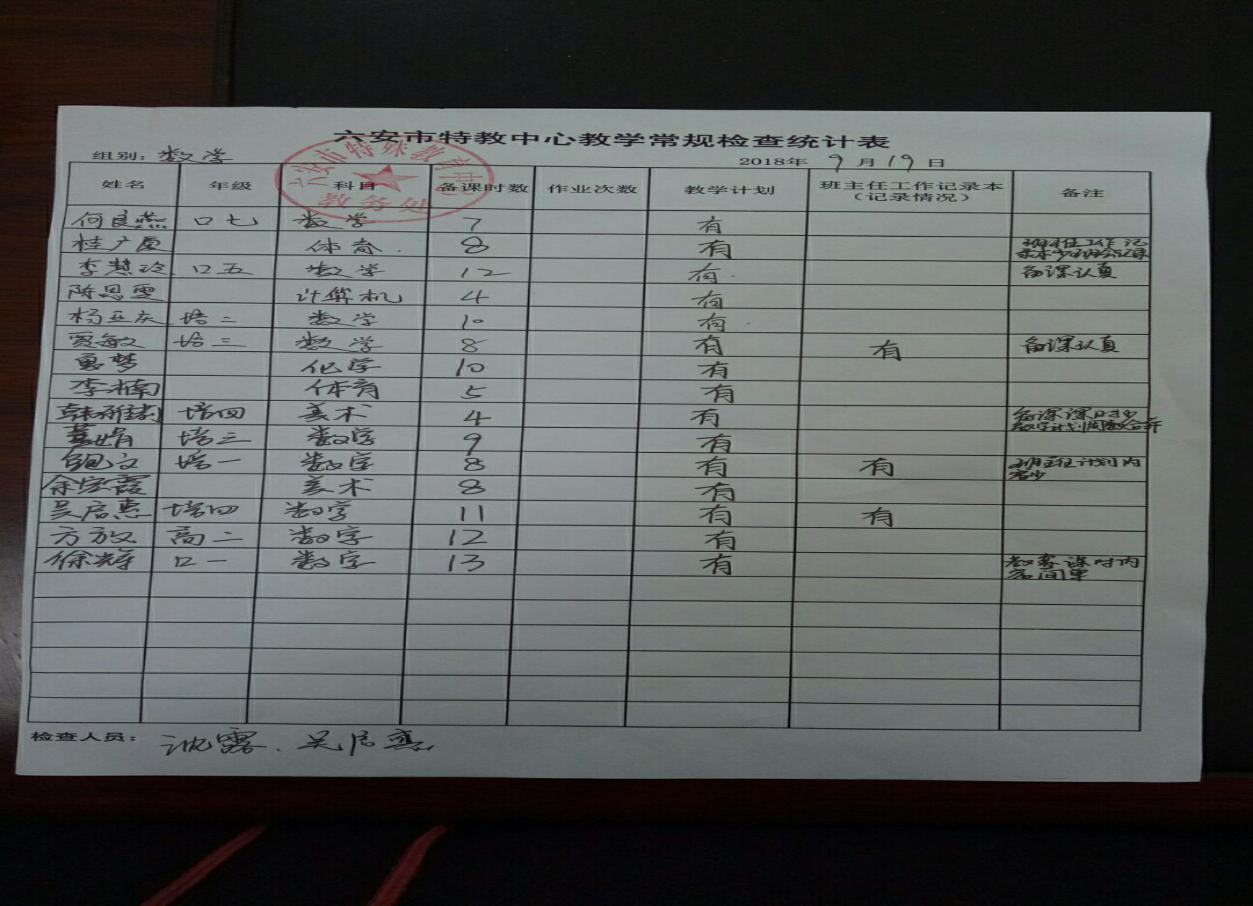 六安市特教中心教学常规检查统计表
组别：数学 2018年 9 月 19 日
六安市特殊教育中心
教务处
姓名 年级 科目 备课时数 作业次数 教学计划 班主任工作记录本（记录情况） 备注
何良燕 口七 数学 7 有
桂广厦 体育 8 有
李慧玲 口五 数学 12 有 备课认真
陈思雯 计算机 4 有
杨正庆 培二 数学 10 有
贾敏 培三 数学 8 有 有 备课认真
梦 化学 10 有
李湘南 体育 5 有
韩 培四 美术 4 有 备课课时少
娟 培三 数学 9 有
鲍文 培一 数学 8 有 有 班主任计划内容少
余宏霞 美术 8 有
吴启惠 培四 数学 11 有 有
方放 高二 数学 12 有
徐辉 口一 数学 13 有 教案课时内容简单
检查人员：沈露、吴启惠